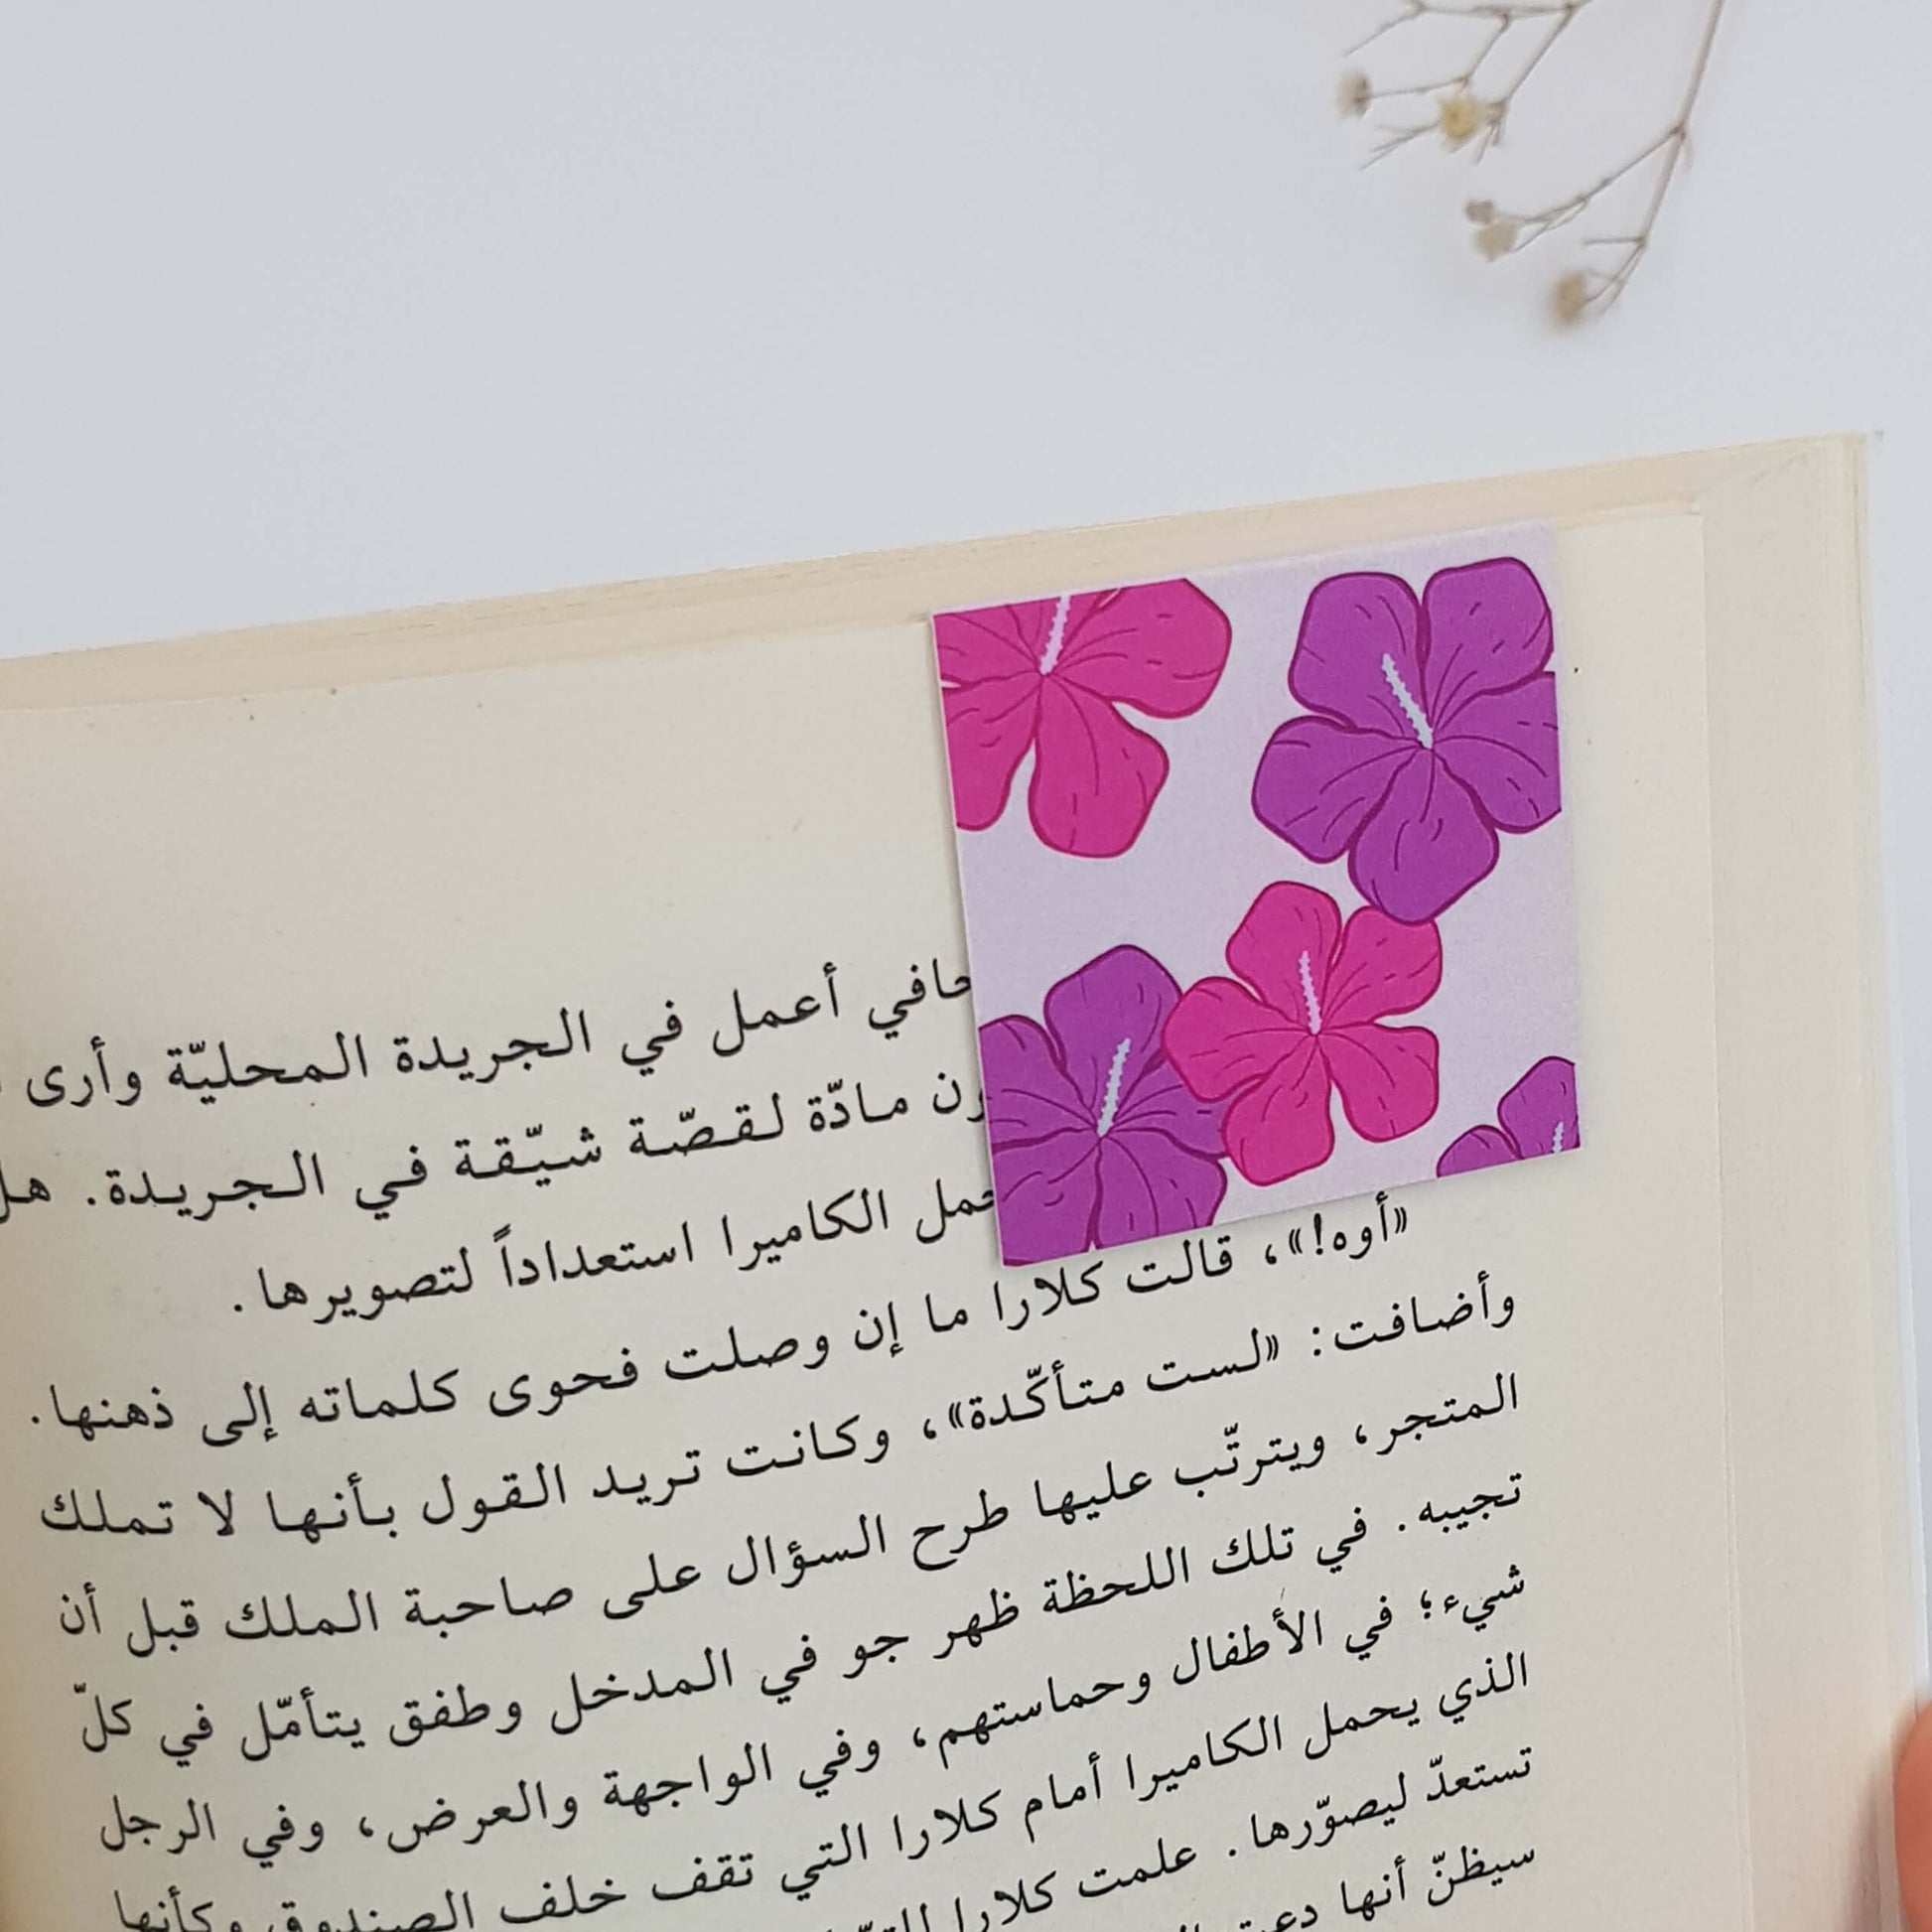 أعمل في الجريدة المحليّة وأرى
مادّة لقصّة شيّقة في الجريدة. هل
الكاميرا استعداداً لتصويرها.
«أوه!»، قالت كلارا ما إن وصلت فحوى كلماته إلى ذهنها.
وأضافت: «لست متأكّدة»، وكانت تريد القول بأنها لا تملك
المتجر، ويترتّب عليها طرح السؤال على صاحبة الملك قبل أن
تجيبه. في تلك اللحظة ظهر جو في المدخل وطفق يتأمّل في كلّ
شيء؛ في الأطفال وحماستهم، وفي الواجهة والعرض، وفي الرجل
الذي يحمل الكاميرا أمام كلارا التي تقف خلف الصندوق وكأنها
تستعدّ ليصوّرها. علمت كلارا
سيظنّ أنها